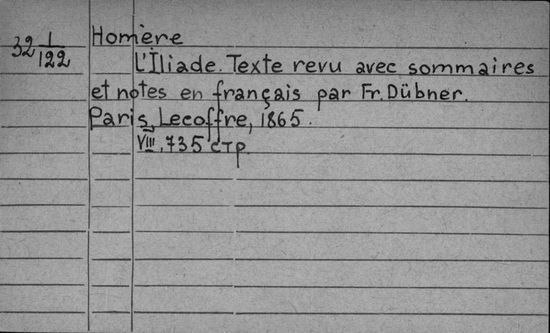 32 1/122
Homère
L'Iliade. Texte revu avec sommaires
et notes en français par Fr. Dübner.
Paris, Lecoffre, 1865.
VIII, 735 стр.